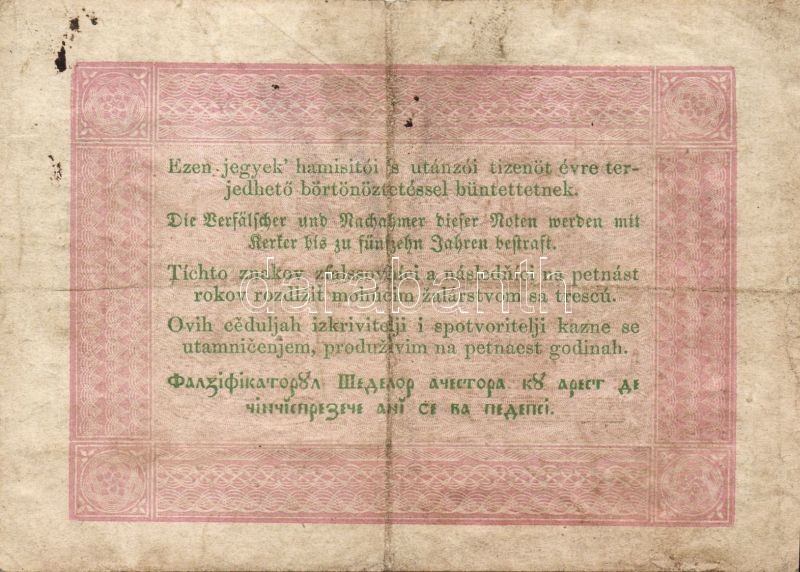 Ezen jegyek' hamisitói 's utánzói tizenöt évre ter-
jedhető börtönöztetéssel büntettetnek.
Die Verfälscher und Nachahmer dieser Noten werden mit
Kerker bis zu fünfzehn Jahren bestraft.
Tíchto znakov zfalssovňáci a následňíci na petnást
rokov rozdlžit mohúcim žalárstvom sa trescú.
Ovih cěduljah izkrivitelji i spotvoritelji kazne se
utamničenjem, produživim na petnaest godinah.
Фалзіфікаторꙋл Шеделор ачестора кꙋ арест де
чінчіспрезече ані се ва педепсі.
darabanth